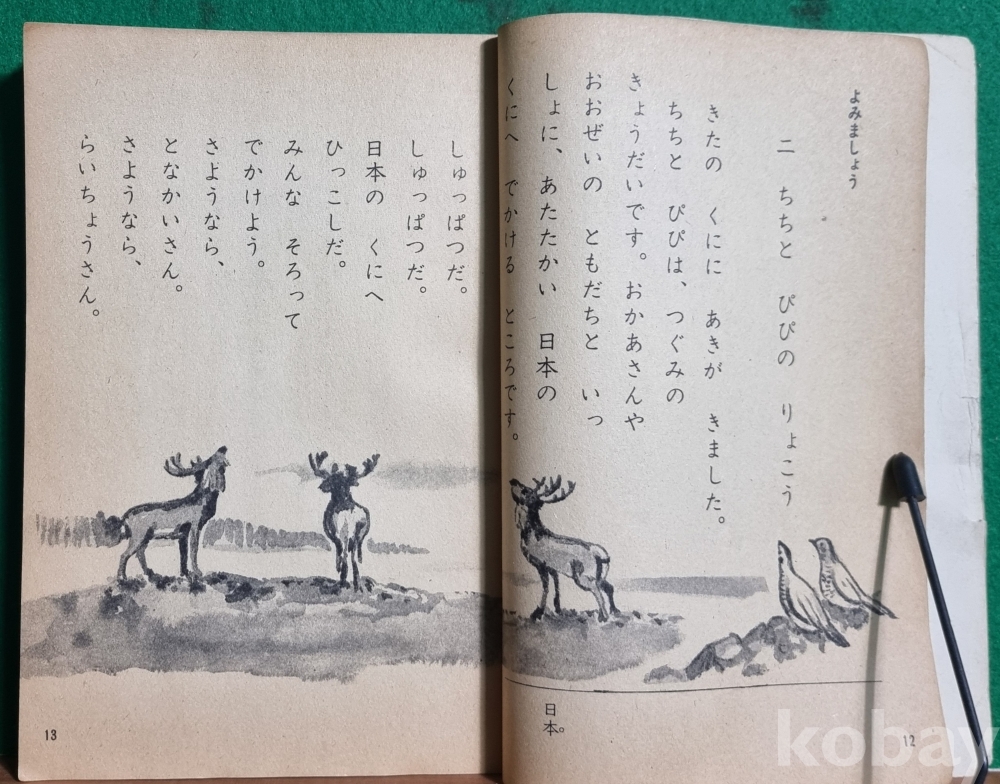 よみましょう
二 ちちと ぴぴの りょこう
きたの くにに あきが きました。
ちちと ぴぴは、つぐみの
きょうだいです。おかあさんや
おおぜいの ともだちと いっ
しょに、あたたかい 日本の
くにへ でかける ところです。
日本。
12
しゅっぱつだ。
しゅっぱつだ。
日本の くにへ
ひっこしだ。
みんな そろって
でかけよう。
さようなら、
となかいさん。
さようなら、
らいちょうさん。
13
kobay